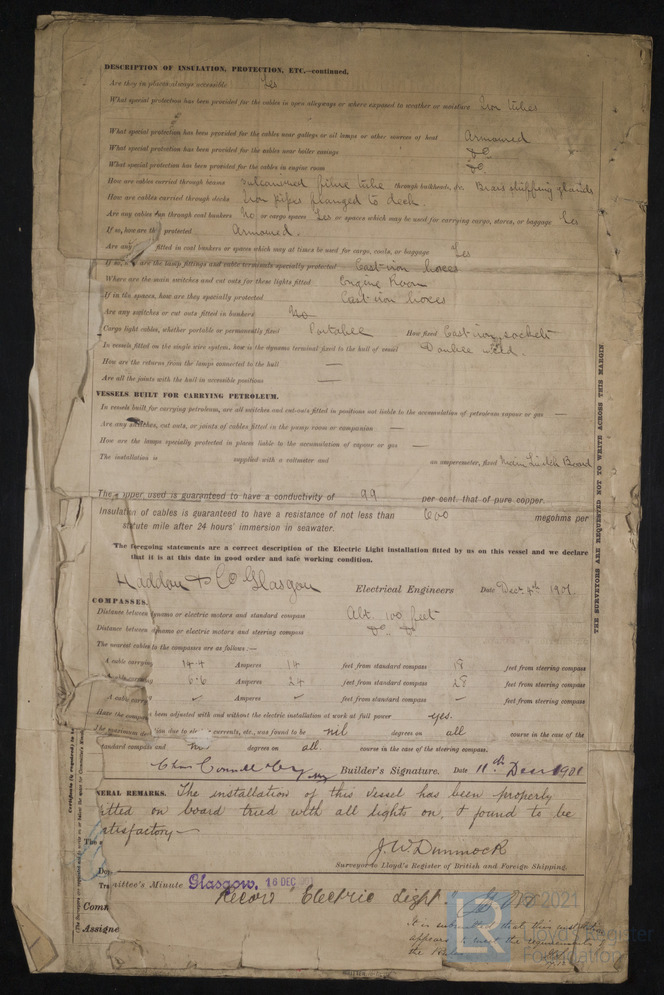 DESCRIPTION OF INSULATION, PROTECTION, ETC.—continued.
Are they in places always accessible Yes
What special protection has been provided for the cables in open alleyways or where exposed to weather or moisture Iron tubes
What special protection has been provided for the cables near galleys or oil lamps or other sources of heat Armoured
What special protection has been provided for the cables near boiler casings do
What special protection has been provided for the cables in engine room do
How are cables carried through beams vulcanised fibre tube through bulkheads, &c. Brass stuffing glands
How are cables carried through decks Iron pipes flanged to deck.
Are any cables run through coal bunkers No or cargo spaces Yes or spaces which may be used for carrying cargo, stores, or baggage Yes
If so, how are they protected Armoured.
Are any fitted in coal bunkers or spaces which may at times be used for cargo, coals, or baggage Yes
If so, how are the lamp fittings and cable terminals specially protected Cast iron boxes
Where are the main switches and cut outs for these lights fitted Engine Room
If in the spaces, how are they specially protected Cast iron boxes
Are any switches or cut outs fitted in bunkers No
Cargo light cables, whether portable or permanently fixed Portable How fixed Cast iron sockets
In vessels fitted on the single wire system, how is the dynamo terminal fixed to the hull of vessel Double wired.
How are the returns from the lamps connected to the hull —
Are all the joints with the hull in accessible positions —
VESSELS BUILT FOR CARRYING PETROLEUM.
In vessels built for carrying petroleum, are all switches and cut-outs fitted in positions not liable to the accumulation of petroleum vapour or gas —
Are any switches, cut outs, or joints of cables fitted in the pump room or companion —
How are the lamps specially protected in places liable to the accumulation of vapour or gas —
The installation is supplied with a voltmeter and an amperemeter, fixed Main Switch Board
The copper used is guaranteed to have a conductivity of 99 per cent. that of pure copper.
Insulation of cables is guaranteed to have a resistance of not less than 600 megohms per
statute mile after 24 hours' immersion in seawater.
The foregoing statements are a correct description of the Electric Light installation fitted by us on this vessel and we declare
that it is at this date in good order and safe working condition.
Haddon & Co Glasgow Electrical Engineers Date Dec. 4th 1901.
COMPASSES.
Distance between dynamo or electric motors and standard compass Abt. 100 feet
Distance between dynamo or electric motors and steering compass do do
The nearest cables to the compasses are as follows:—
A cable carrying 14.4 Amperes 14 feet from standard compass 18 feet from steering compass
A cable carrying 6.6 Amperes 24 feet from standard compass 28 feet from steering compass
A cable carrying Amperes feet from standard compass — feet from steering compass
Have the compasses been adjusted with and without the electric installation at work at full power yes.
The maximum deviation due to electric currents, etc., was found to be nil degrees on all course in the case of the
standard compass and nil degrees on all course in the case of the steering compass.
Chas Connell & Co Builder's Signature. Date 11th Decr 1901
NERAL REMARKS. The installation of this vessel has been properly
itted on board tried with all lights on, & found to be
atisfactory
J.W. Dimmock
Surveyor to Lloyd's Register of British and Foreign Shipping.
ittee's Minute Glasgow. 16 DEC
Record "Electric Light"
Assigne
It is submitted that this installation
appears to meet the requirements of
the Rules
THE SURVEYORS ARE REQUESTED NOT TO WRITE ACROSS THIS MARGIN
2021
Lloyd's Register
Foundation
LR